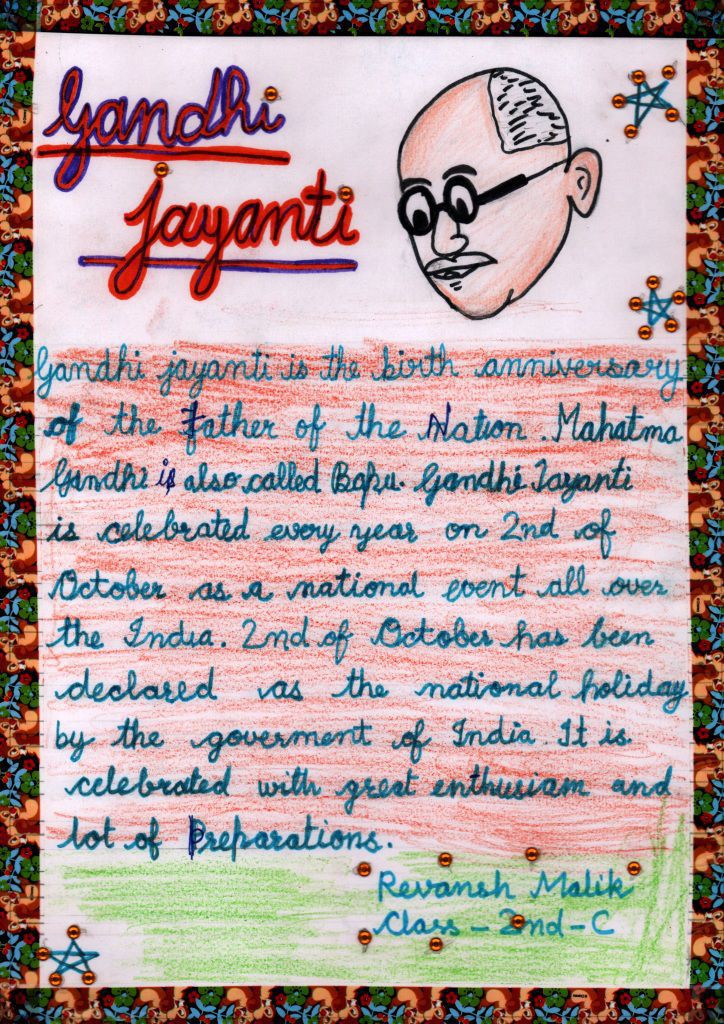 Gandhi
Jayanti
Gandhi jayanti is the birth anniversary
of the Father of the Nation. Mahatma
Gandhi is also called Bapu. Gandhi Jayanti
is celebrated every year on 2nd of
October as a national event all over
the India. 2nd of October has been
declared as the national holiday
by the goverment of India. It is
celebrated with great enthusiam and
lot of Preparations.
Revansh Malik
Class - 2nd - C